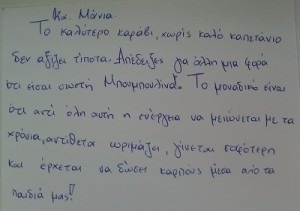 Κα. Μάνια
Το καλύτερο καράβι, χωρίς καλό καπετάνιο
δεν αξίζει τίποτα. Απέδειξες για άλλη μια φορά
ότι είσαι σωστή Μπουμπουλίνα. Το μοναδικό είναι
ότι αντί όλη αυτή η ενέργεια να μειώνεται με τα
χρόνια, αντίθετα ωριμάζει, γίνεται σοφότερη
και έρχεται να δώσει καρπούς μέσα από τα
παιδιά μας!